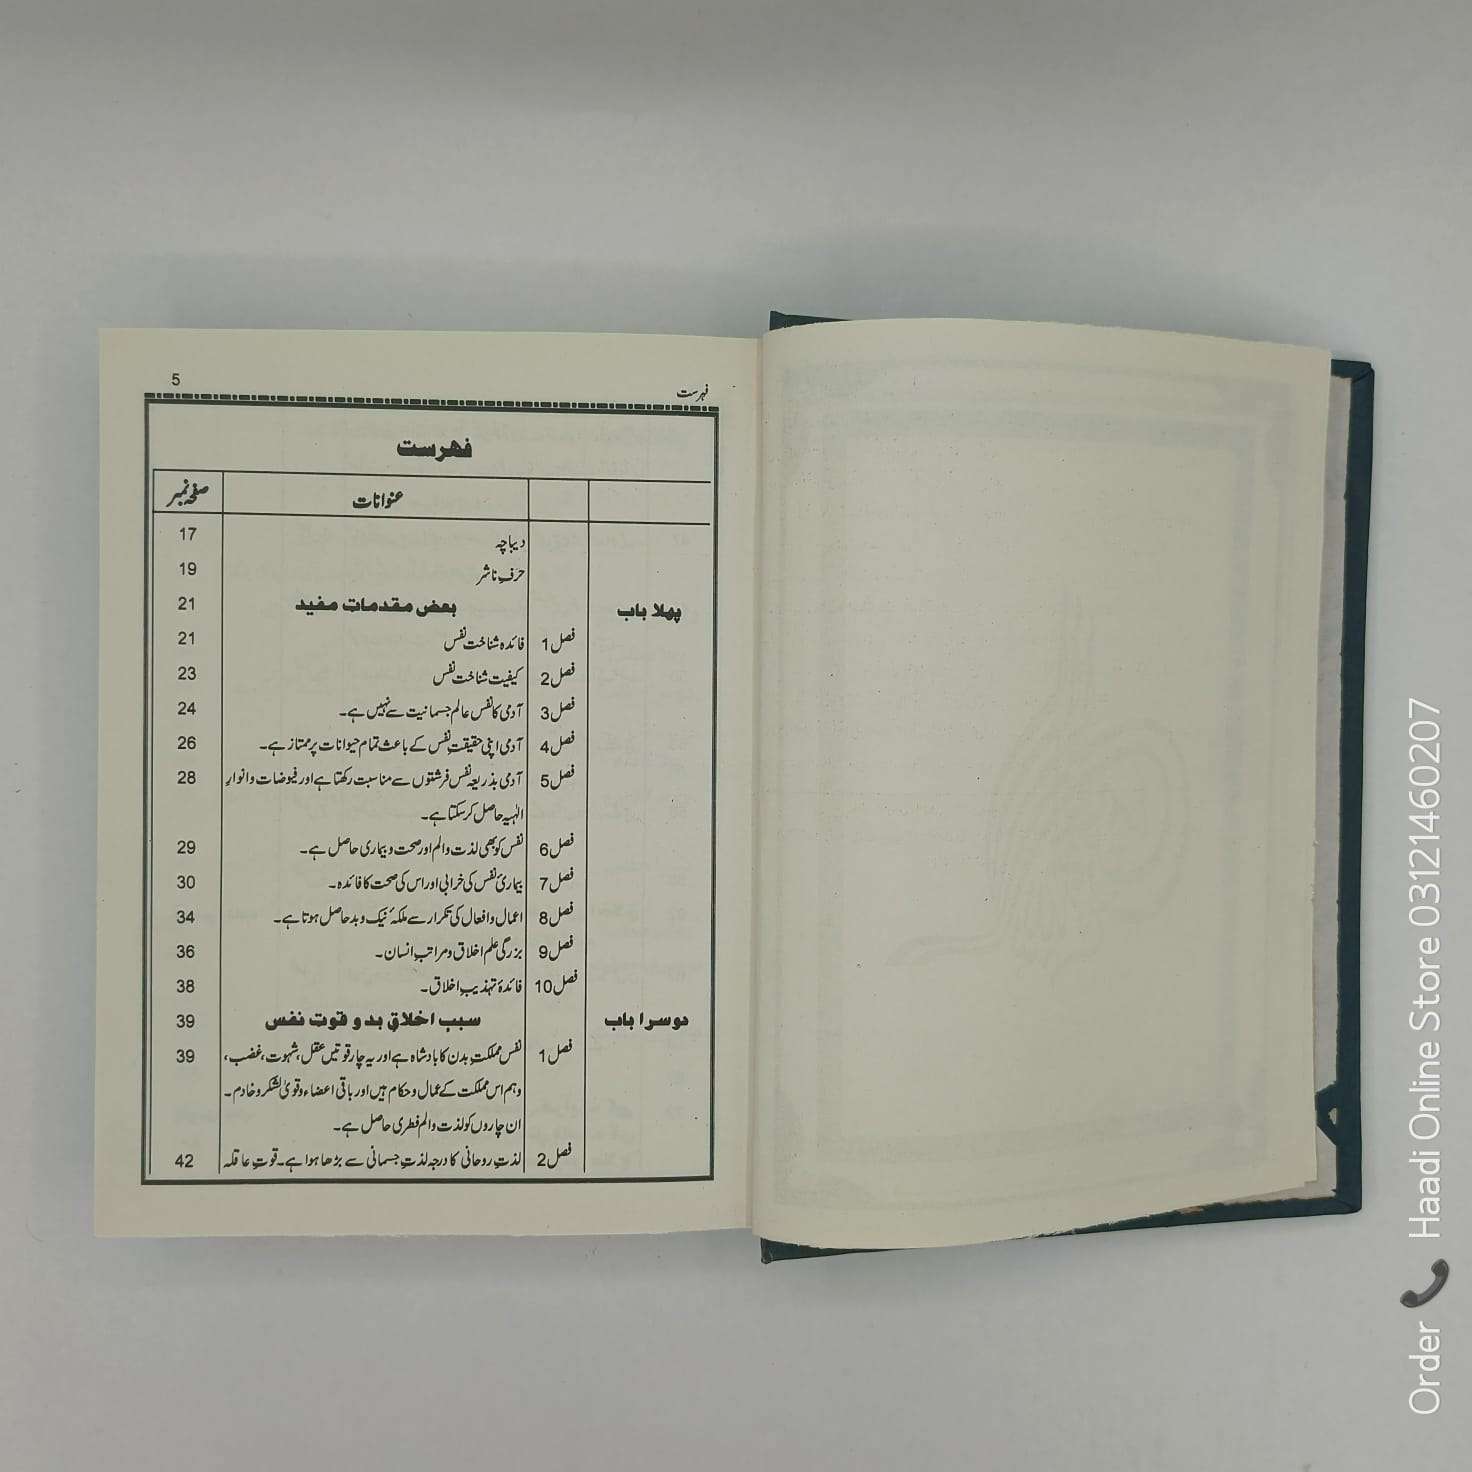 فہرست 5
فہرست
عنوانات صفحہ نمبر
دیباچہ 17
حرفِ ناشر 19
پہلا باب بعض مقدمات مفید 21
فصل 1 فائدہ شناخت نفس 21
فصل 2 کیفیت شناخت نفس 23
فصل 3 آدمی کا نفس عالم جسمانیت سے نہیں ہے۔ 24
فصل 4 آدمی اپنی حقیقتِ نفس کے باعث تمام حیوانات پر ممتاز ہے۔ 26
فصل 5 آدمی بذریعہ نفس فرشتوں سے مناسبت رکھتا ہے اور فیوضات و انوارِ 28
الٰہیہ حاصل کر سکتا ہے۔
فصل 6 نفس کو بھی لذت و الم اور صحت و بیماری حاصل ہے۔ 29
فصل 7 بیماریٔ نفس کی خرابی اور اس کی صحت کا فائدہ۔ 30
فصل 8 اعمال و افعال کی تکرار سے ملکۂ نیک و بد حاصل ہوتا ہے۔ 34
فصل 9 بزرگی علم اخلاق و مراتبِ انسان۔ 36
فصل 10 فائدۂ تہذیبِ اخلاق۔ 38
دوسرا باب سبب اخلاقِ بد و قوت نفس 39
فصل 1 نفس مملکتِ بدن کا بادشاہ ہے اور یہ چار قوتیں عقل، شہوت، غضب، 39
وہم اس مملکت کے عمال و حکام ہیں اور باقی اعضاء و قویٰ لشکر و خادم۔
ان چاروں کو لذت و الم فطری حاصل ہے۔
فصل 2 لذتِ روحانی کا درجہ لذتِ جسمانی سے بڑھا ہوا ہے۔ قوتِ عاقلہ 42
Order Haadi Online Store 03121460207